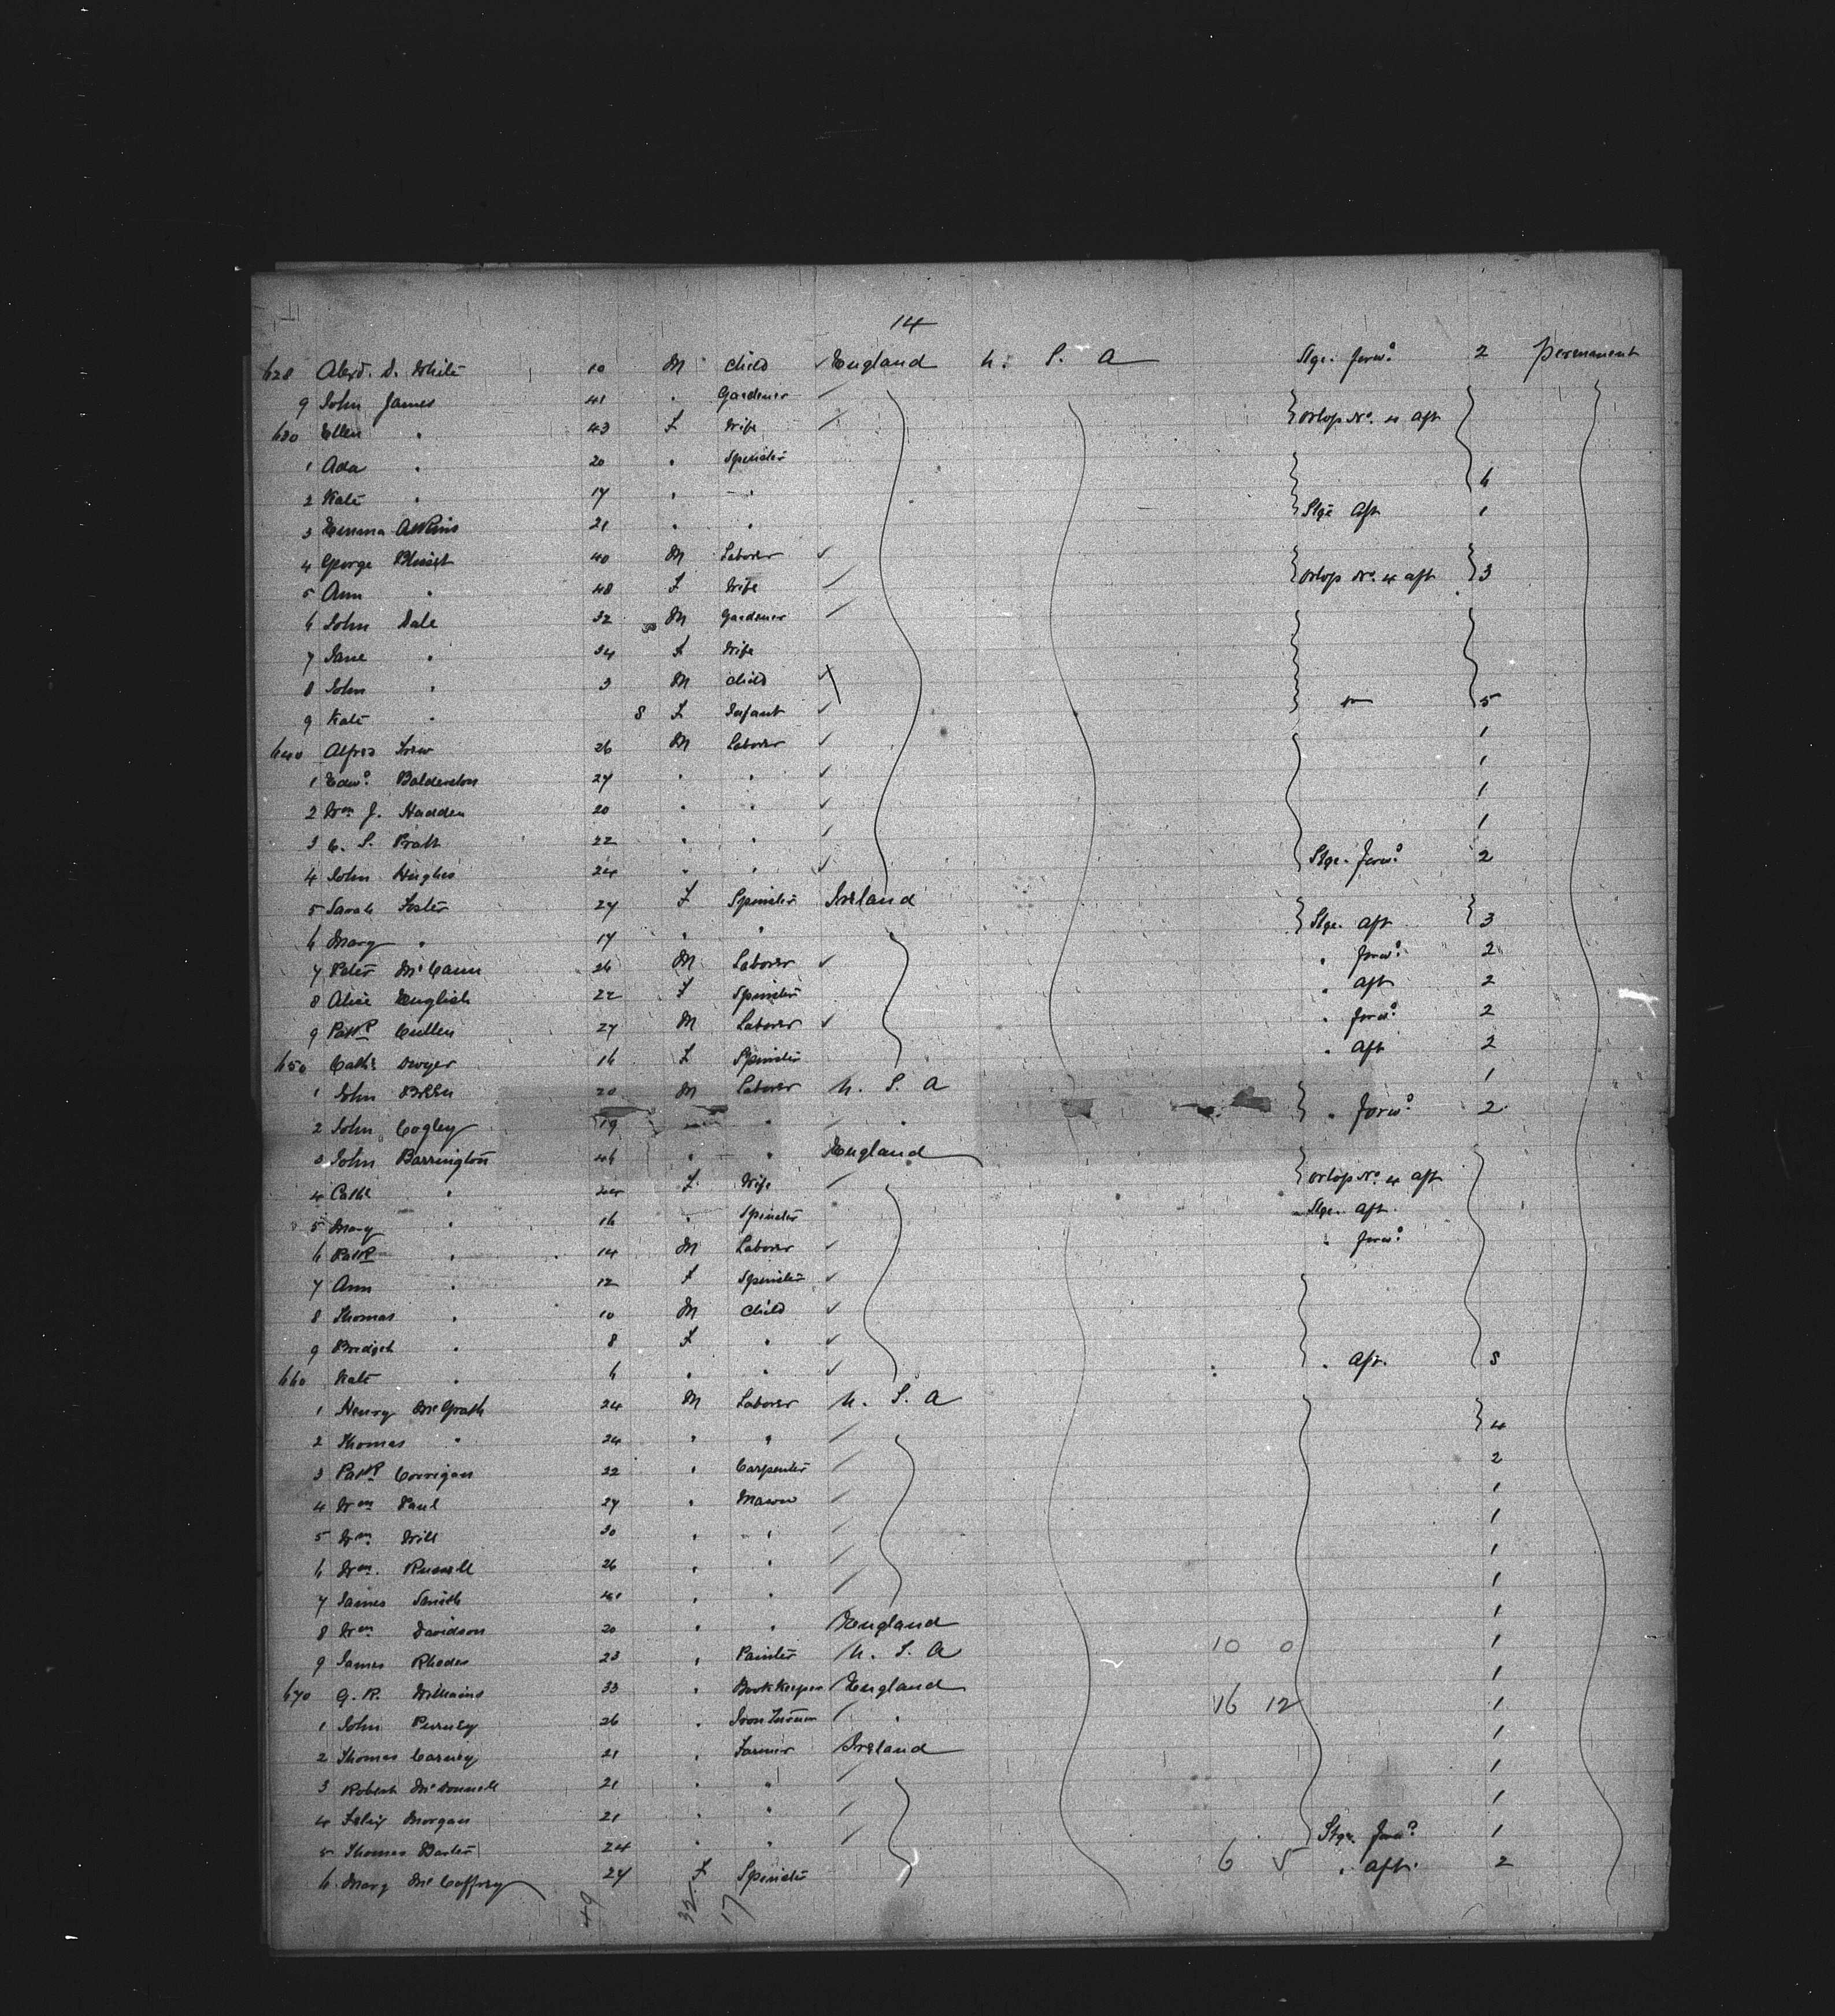 14
628 Alexd. D. White 10 M Child England U. S. A Stge. forwd. 2 Permanent
9 John James 41 " Gardener Orlop No. 4 aft
630 Ellen " 43 F Wife
1 Ada " 20 " Spinster
2 Kate " 17 " " 6
3 Emma Atkins 21 " " Stge aft 1
4 George 40 M Laborer
5 Ann " 48 F Wife Orlop No. 4 aft 3
6 John Dale 32 M Gardener
7 Jane " 34 F Wife
8 John " 3 M Child
9 Kate " 8 F Infant 5
640 Alfred 26 M Laborer 1
1 Edwd. Balderston 27 " " 1
2 Wm J. Hadden 20 " " 1
3 C. S. Pratt 22 " " 1
4 John Hughes 24 " " Stge. forwd. 2
5 Sarah Foster 27 F Spinster Ireland
6 Mary " 17 " " Stge. aft 3
7 Peter McCann 26 M Laborer " forwd. 2
8 Alice English 22 F Spinster " aft 2
9 Patk Cullen 27 M Laborer " forwd. 2
650 Cathe Dwyer 16 F Spinster " aft 2
1 John 20 M Laborer U. S. A 1
2 John Cogley 19 " " " forwd. 2
3 John Barrington 46 " " England
4 Cathe " 44 F Wife Orlop No. 4 aft
5 Mary " 16 " Spinster Stge. aft
6 Patk " 14 M Laborer " forwd.
7 Ann " 12 F Spinster
8 Thomas " 10 M Child
9 Bridget " 8 F "
660 Kate " 6 " " " Aft. 8
1 Henry McGrath 24 M Laborer U. S. A
2 Thomas " 24 " " 4
3 Patk Corrigan 22 " Carpenter 2
4 Wm Paul 27 " Mason 1
5 Wm Will 30 " " 1
6 Wm. Russell 26 " " 1
7 James Smith 41 " " 1
8 Wm Davidson 20 " " England 1
9 James Rhodes 23 " Painter U. S. A 10 0 1
670 G. R. Williams 33 " Bookkeeper England 1
1 John Purvey 26 " Iron Turner " 16 12 1
2 Thomas Carney 21 " Farmer Ireland 1
3 Robert McDonnell 21 " " 1
4 Felix Morgan 21 " " 1
5 Thomas 24 " " Stge. forwd. 1
6 Mary McCaffrey 27 F Spinster 6 5 " aft. 2
49 32 17